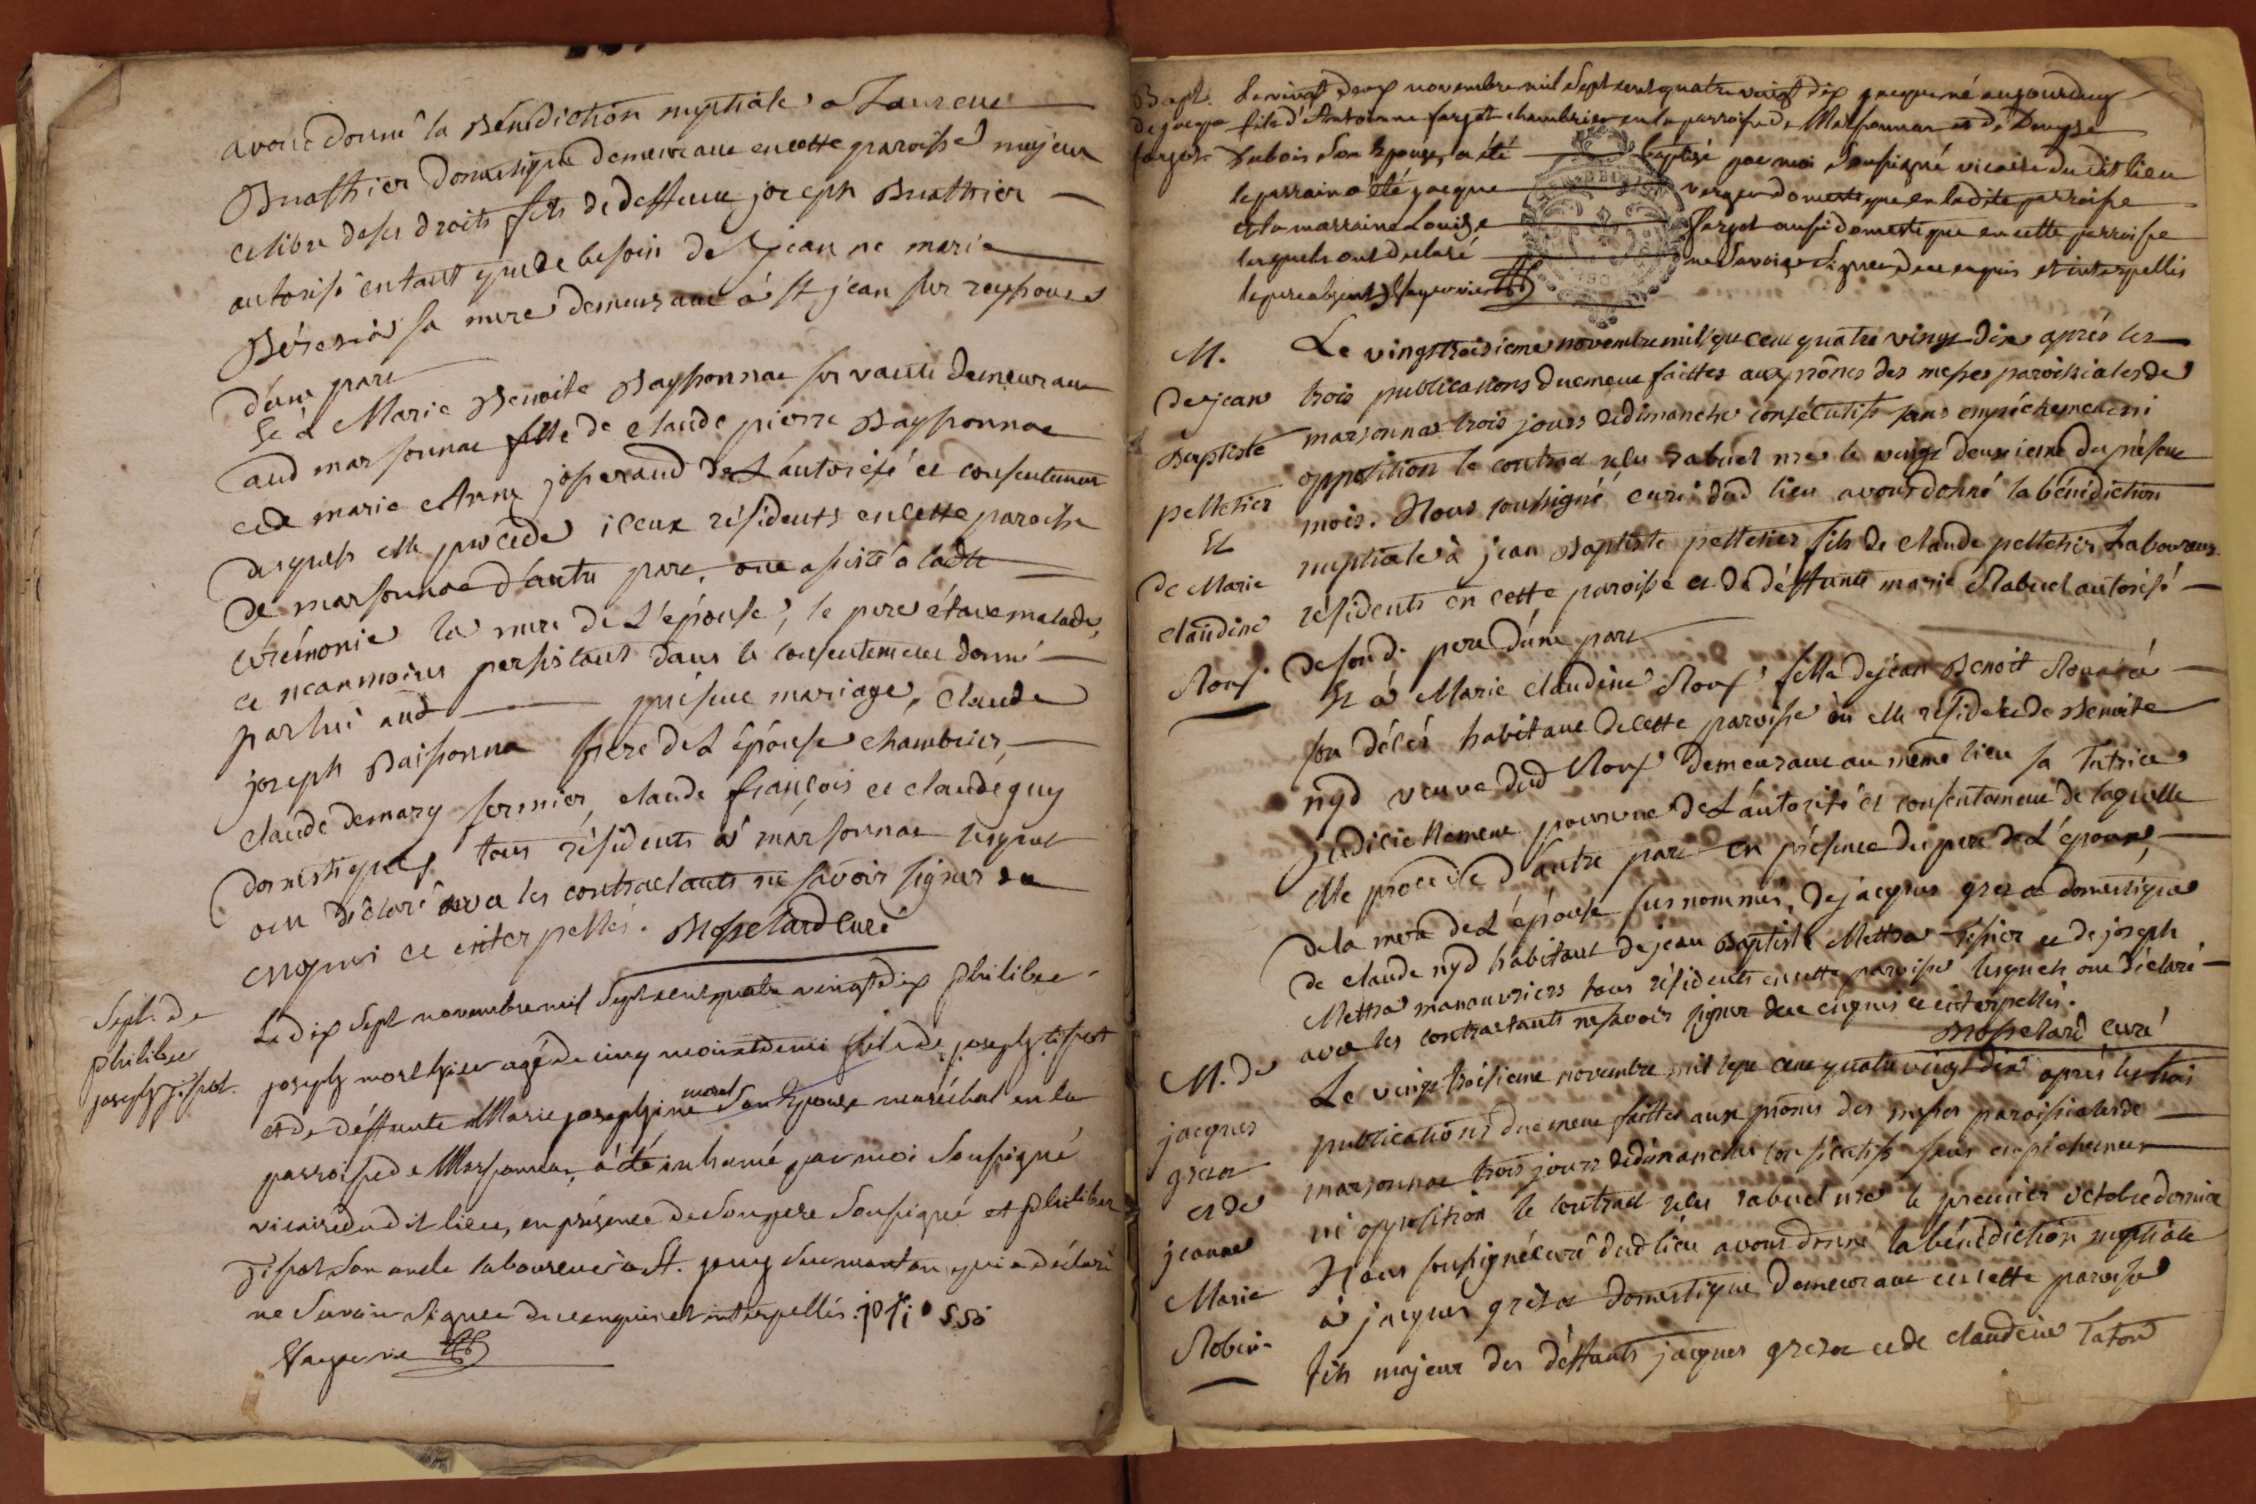 avons donné la Bénédiction nuptiale a Laurent
Buathier domestique demeurant en cette paroisse majeur
et libre de ses droits fils de deffunt joseph Buathier
autorisé entant que de besoin de jeanne marie
sa mere demeurant à St jean sur reyssouse
d'une part
Et à Marie Benoite Bayssonnat servante demeurant
aud marsonnat fille de claude pierre Bayssonnat
et de marie Anne josserand de L'autorité et consentement
desquels elle procede iceux résidents en cette paroisse
de marsonnat d'autre part, ont assisté à ladte
cérémonie la mere de L'épouse, le pere étant malade,
et néanmoins persistant dans le consentement donné
par lui aud présent mariage, claude
joseph Baissonna frere de L'épouse chambrier
claude demary fermier, claude françois et claude guy
domestiques, tous résidents à marsonnat lesquels
ont déclaré avec les contractants ne savoir signer de ce
enquis et interpellés. curé
Sept. de
philibert
joseph
Le dix sept novembre mil sept cent quatre vingt dix philibert
joseph agé de cinq mois et demi fils de joseph
et de deffunte Marie josephine morel son Epouse maréchal en la
parroisse de Marsonnas, a été inhumé par moi soussigné
vicaire dudit lieu, en présence de son pere soussigné et philibert
son oncle laboureur à St. qui a déclaré
ne savoir signer de ce enquis et interpellés.
Bapt.
de jacque
farget
Le vingt deux novembre mil sept cent quatre vingt dix jacque né aujourd'huy
fils d'Antoine farget chambrier en la parroisse de Marsonnas et de Denyse
Dubois son Epouse, a été baptisé par moi soussigné vicaire dudit lieu
le parrain a été jacque verger domestique en ladite parroisse
et la marraine Louise farget aussi domestique en cette parroisse
lesquels ont declaré ne savoir signer de ce enquis et interpellés
le pere absent
M.
de jean
Baptiste
pelletier
Et
de Marie
claudine
Roux
Le vingt troisieme novembre mil sept cent quatre vingt dix après les
trois publications duement faittes aux prônes des messes paroissiales de
marsonnas trois jours de dimanche consécutifs sans empêchement ni
opposition le contract reçu rabuel nre le vingt deuxieme du présent
mois. Nous soussigné curé dud lieu avons donné la bénédiction
nuptiale à jean Baptiste pelletier fils de claude pelletier Laboureur
résidents en cette paroisse et de déffunte marie Rabuel autorisé
de sond. pere d'une part
Et à Marie claudine Roux fille de jean Benoit Roux à
son décès habitant de cette paroisse où elle réside et de Benoite
nyd veuve dud Roux demeurant au même lieu sa Tutrice
judiciellement pourvue de L'autorité et consentement de laquelle
elle procede d'autre part en présence du pere de L'époux,
de la mere de L'épouse susnommés, de jacques grezat domestique
de claude nyd habitant de jean Baptiste Mettra et de joseph
Mettra manouvriers tous résidents en cette paroisse lesquels ont déclaré
avec les contractants ne savoir signer de ce enquis et interpellés.
curé
M. de
jacques
grezat
et de
jeanne
Marie
Robin
Le vingt troisieme novembre mil sept cent quatre vingt dix après les trois
publications duement faittes aux prônes des messes paroissiales de
marsonnas trois jours de dimanches consécutifs sans empêchement
ni opposition le contract reçu rabuel nre le premier octobre dernier
Nous soussigné curé dud lieu avons donné la bénédiction nuptiale
à jacques grezat domestique demeurant en cette paroisse
fils majeur des déffunts jacques grezat et de claudine